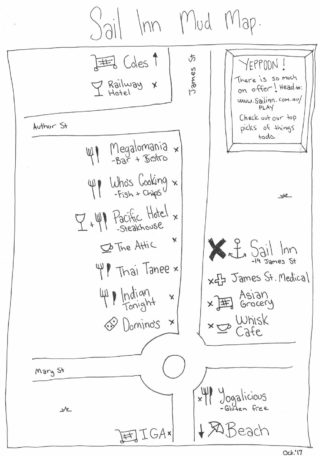 Sail Inn Mud Map.
Coles
Railway
Hotel
James St
YEPPOON!
There is so much
on offer! Head to:
www.sailinn.com.au/
PLAY
Check out our top
picks of things
todo.
Author St
Megalomania
-Bar + Bistro
Who's Cooking
-Fish + Chips
Pacific Hotel
-Steakhouse
The Attic
Thai Tanee
Indian
Tonight
Dominos
Sail Inn
-19 James St
James St. Medical
Asian
Grocery
Whisk
Cafe
Mary St
Yogalicious
-Gluten free
IGA
Beach
Oct '17